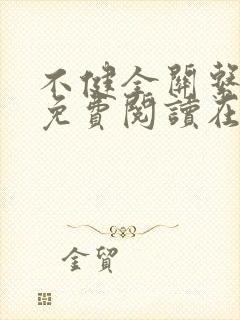 不健全關繫
免費閱讀在
金貿